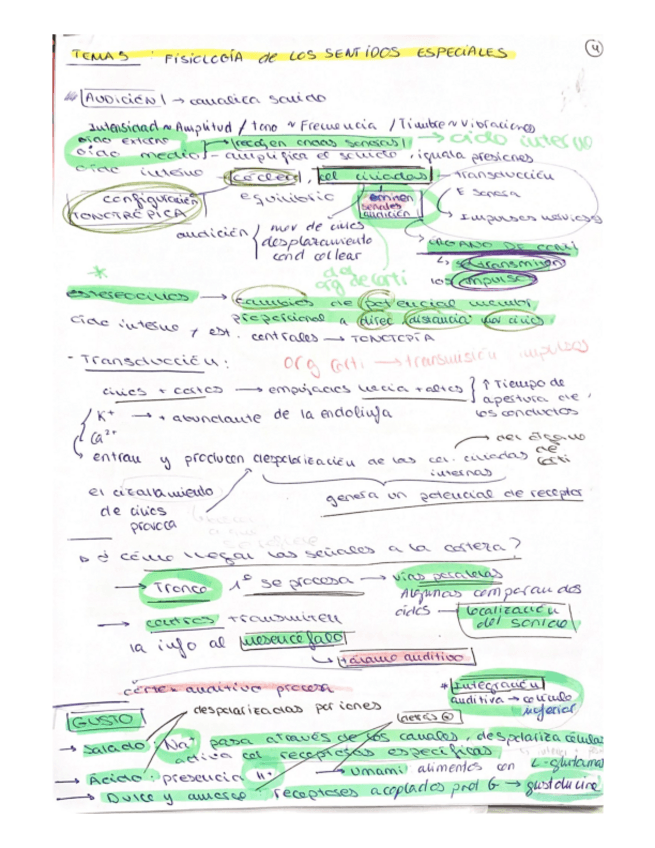 TEMA 5 : FISIOLOGÍA de LOS SENTIDOS ESPECIALES
4
AUDICIÓN → canaliza sonido
Intensidad ~ Amplitud / tono ~ Frecuencia / Timbre ~ Vibraciones
oido externo → recogen ondas sonoras → oido interno
oido medio → amplifica el sonido, iguala presiones
oido interno → cóclea, cel ciliadas → transducción
configuración TONOTRÓPICA
equilibrio
emiten señales audición
E sonora
↳ Impulsos nerviosos
audición
mov de cilios
desplazamiento
cond coclear
del org de corti
↳ ORGANO DE CORTI
↳ transmiten
los impulsos
*
estereocilios → cambios de potencial membr.
proporcional a direc /distancia mov cilios.
oido interno y est. centrales → TONOTOPÍA
- Transducción:
org corti → transmisión impulsos
cilios + cortos → empujados hacia + altos
↑ Tiempo de apertura de los conductos
K+ → + abundante de la endolinfa
Ca2+
entran y producen despolarización de las cel. ciliadas internas
→ del órgano de corti
el cizallamiento
de cilios
provoca
genera un potencial de receptor
¿cómo llegan las señales a la corteza?
→ Tronco 1º se procesa → vías paralelas
Algunas comparan dos
oidos → localización del sonido
→ centros transmiten
la info al mesencéfalo
↳ tálamo auditivo
córtex auditivo procesa
* Integración
auditiva → colículo
despolarizadas por iones
GUSTO
detrás
→ Salado: Na+ pasa através de los canales, despolariza células
activa cel receptoras específicas
→ Ácido: presencia H+ → Umami alimentos con L-glutamato
→ Dulce y amargo: receptores acoplados prot G → gustducina